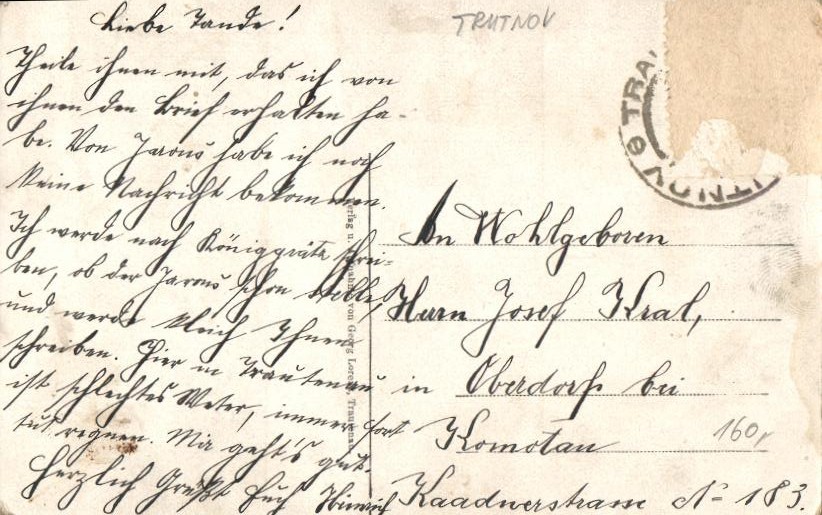 Liebe Tande!
Theile ihnen mit, das ich von
ihnen den Brief erhalten ha-
be. Von Jarous habe ich noch
keine Nachricht bekommen.
Ich werde nach Königgrätz schrei-
ben, ob der Jarous schon
und werde gleich Ihnen
schreiben. Hier in Trautenau
ist schlechtes Weter, immer fort
tut regnen. Mir geht's gut.
Herzlich Grüßt Euch Heinrich
TRUTNOV
TRUTNOV
An Wohlgeboren
Herrn Josef Kral,
in Oberdorf bei
Komotau
Kaadnerstrasse No 183.
160,
von Georg Lorenz, Trautenau